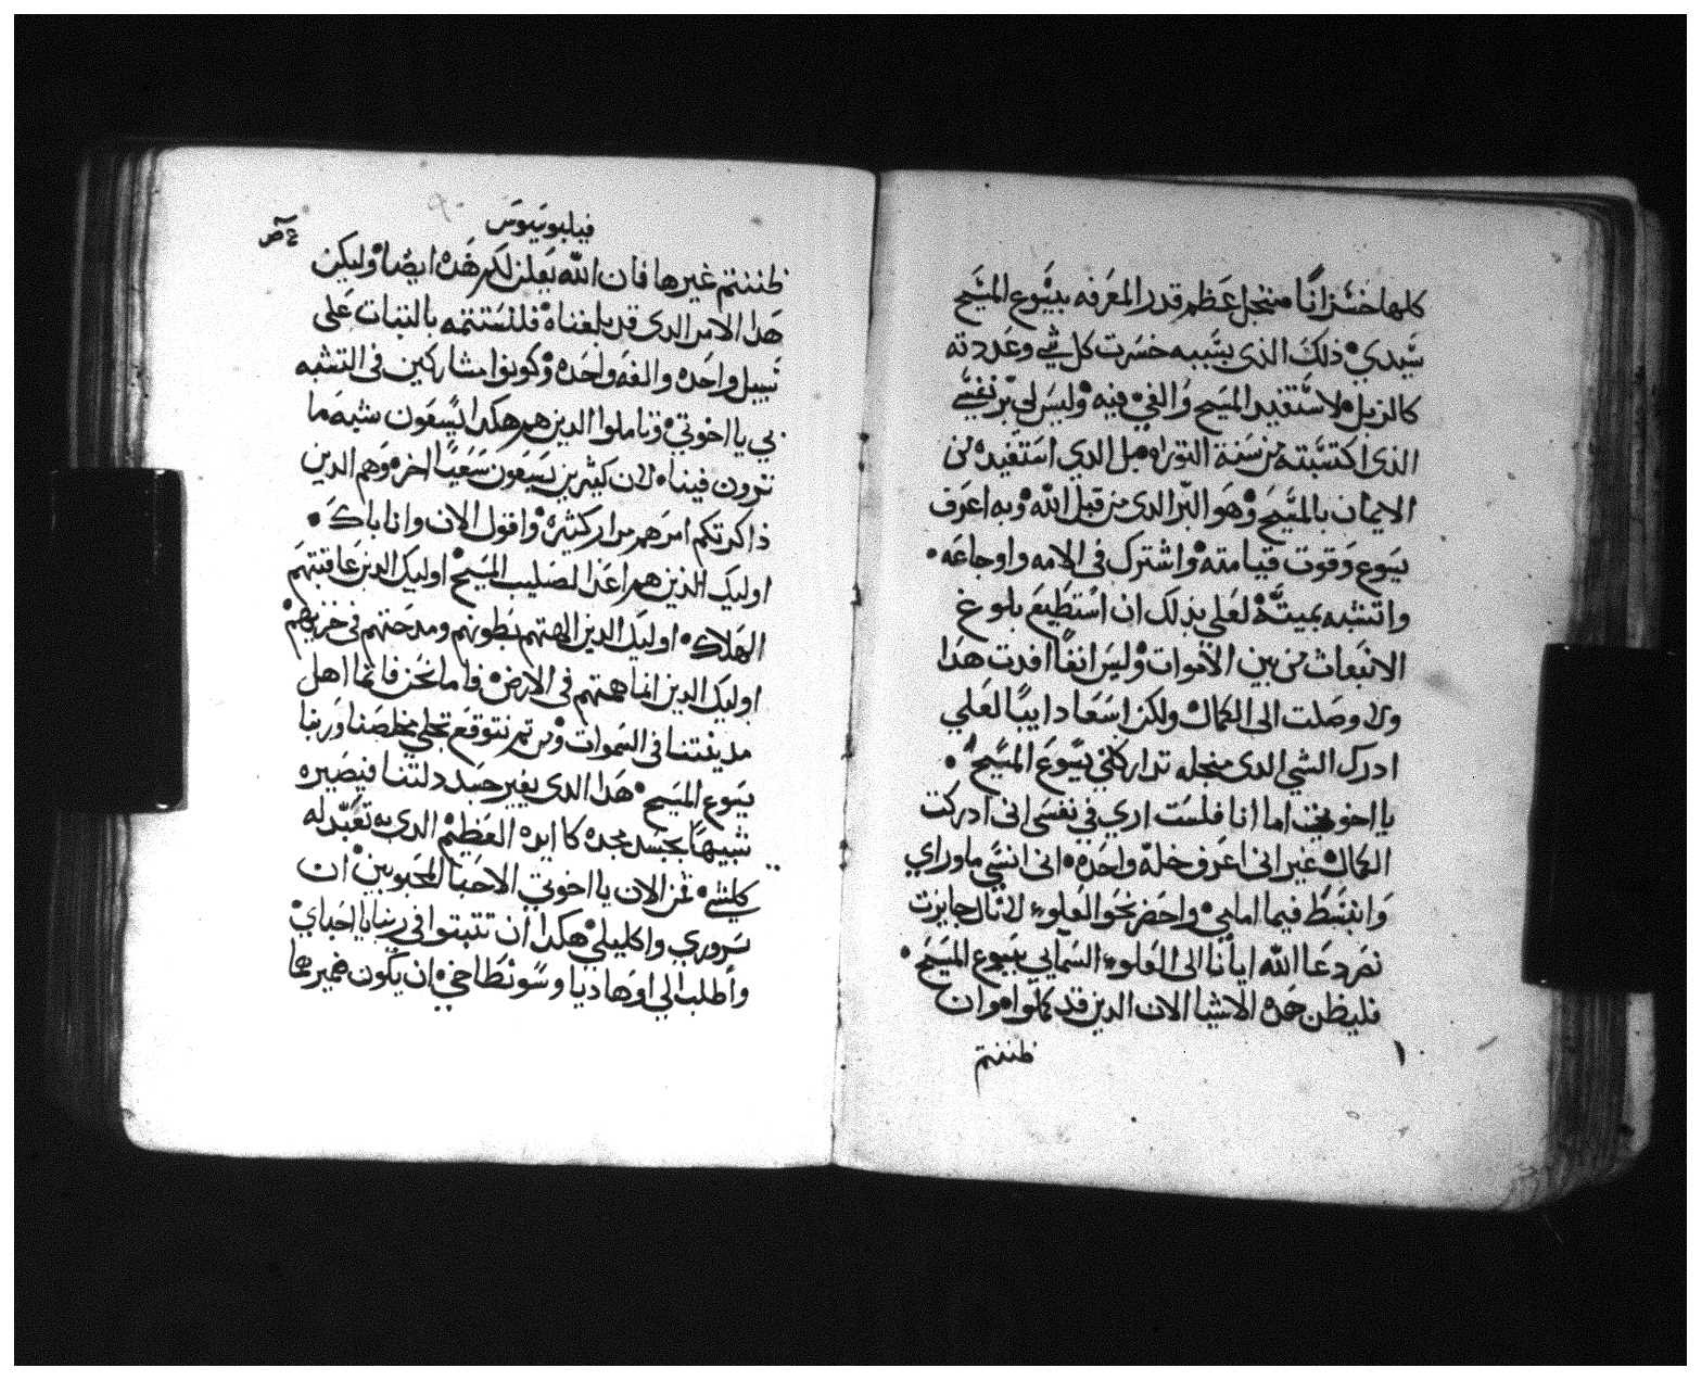 كلها خسرانًا منجل عظم قدر المعرفه بيسوع المسيح
سيدي ذلك الذي بسببه خسرت كل شي وعددته
كالزبل لاستفيد المسيح والفي فيه وليس لي بر نفسي
الذي اكتسبته من سنة التوراه بل الدي استفيده من
الايمان بالمسيح وهو البر الدي من قبل الله وبه اعرف
يسوع وقوت قيامته واشترك في الامه واوجاعه
واتشبه بميتته لعلي بذلك ان استطيع بلوغ
الانبعاث من بين الاموات وليس انفًا افدت هدا
ولا وصلت الى الكمال ولكن اسعا دايبًا لعلي
ادرك الشي الدي منجله تداركني يسوع المسيح
يا اخوتي اما انا فلست اري في نفسي اني ادركت
الكمال غير اني اعرف خله واحده اني انسي ما وراي
وانبسط فيما امامي واحضر نحو العلو لانال جايزت
نصر دعا الله ايانا الى العلو السمايي بيسوع المسيح
فليظن هده الاشيا الان الدين قد كملوا وان
ظننتم
١٠
فيلبوسيوس
ظننتم غيرها فان الله يعلن لكم هده ايضا وليكن
هدا الامر الدي قد بلغناه فلنستتمه بالثبات على
سبيل واحده والفه واحده وكونوا مشاركين في التشبه
بي يا اخوتي وتاملوا الدين هم هكدا يسعون شبه ما
ترون فينا لان كثيرين يسعون سعيًا اخر وهم الدين
ذاكرتكم امرهم مرار كثيره واقول الان وانا باك
اوليك الذين هم اعدا لصليب المسيح اوليك الدين عاقبتهم
الهلاك اوليك الدين الههم بطونهم ومدحتهم في خزيهم
اوليك الدين انما همتهم في الارض فاما نحن فانما اهل
مدينتنا في السموات ومن ثم نتوقع تجلي مخلصنا وربنا
يسوع المسيح هدا الدي يغير جسد دلتنا فيصيره
شبيهًا بجسد مجده كايده العظيم الدي به تعبد له
كلشي فمن الان يا اخوتي الاحبا المحبوبين ان
سروري واكليلي هكدا ان تتبتوا في ربنا يا احباي
واطلب الي اوهاديا وسونطاخي ان يكون ضميرهما